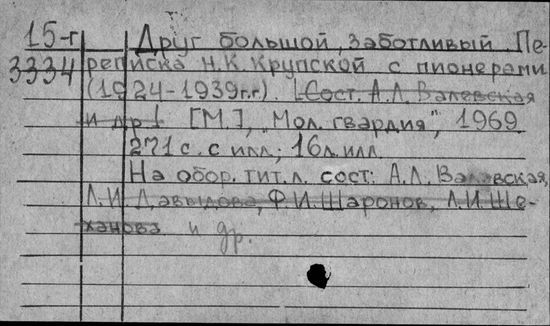 15-г
3334
Друг большой, заботливый. Пе-
реписка Н.К. Крупской с пионерами
(1924-1939г.г.). [Сост. А.Л. Валевская
и др.] [М.], "Мол. гвардия", 1969
271 с. с илл; 16 л. илл.
На обор. тит. л. сост: А.Л. Валевская,
Л.И. Давыдова, Ф.И. Шаронов, Л.И. Ше-
ханова и др.